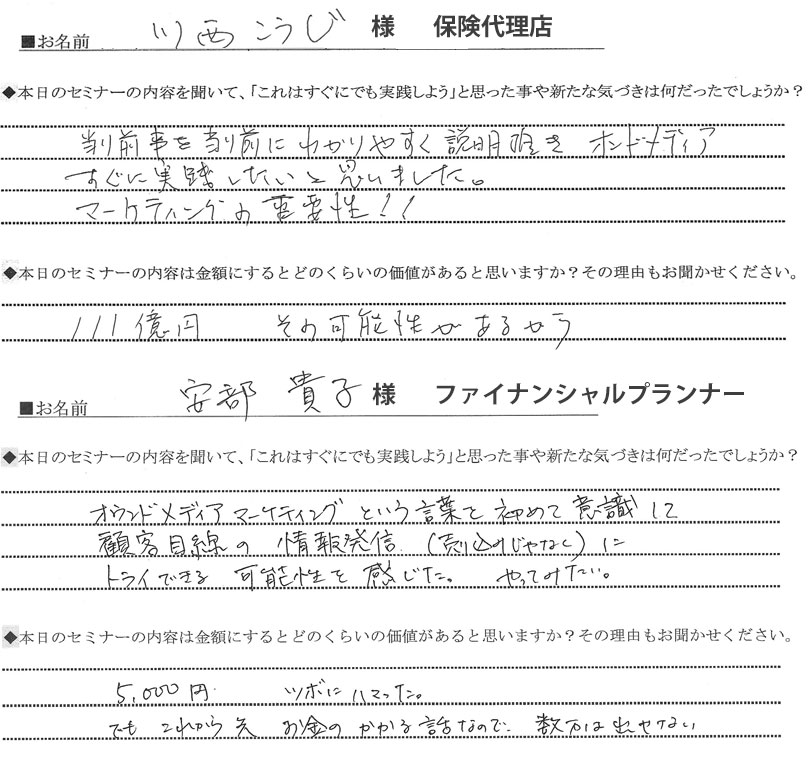 ■お名前 川西こうじ 様 保険代理店
◆本日のセミナーの内容を聞いて、「これはすぐにでも実践しよう」と思った事や新たな気づきは何だったでしょうか？
当り前事を当り前にわかりやすく説明 き オンドメディア
すぐに実践したいと思いました。
マーケティングの重要性!!
◆本日のセミナーの内容は金額にするとどのくらいの価値があると思いますか？その理由もお聞かせください。
111億円 その可能性があるから
■お名前 安部 貴子 様 ファイナンシャルプランナー
◆本日のセミナーの内容を聞いて、「これはすぐにでも実践しよう」と思った事や新たな気づきは何だったでしょうか？
オウンドメディアマーケティングという言葉を初めて意識して
顧客目線の 情報発信 (売り込みじゃなく)に
トライできる 可能性を感じた。 やってみたい。
◆本日のセミナーの内容は金額にするとどのくらいの価値があると思いますか？その理由もお聞かせください。
5,000円 ツボにハマった。
でも これから先 お金のかかる話なので、数万は出せない